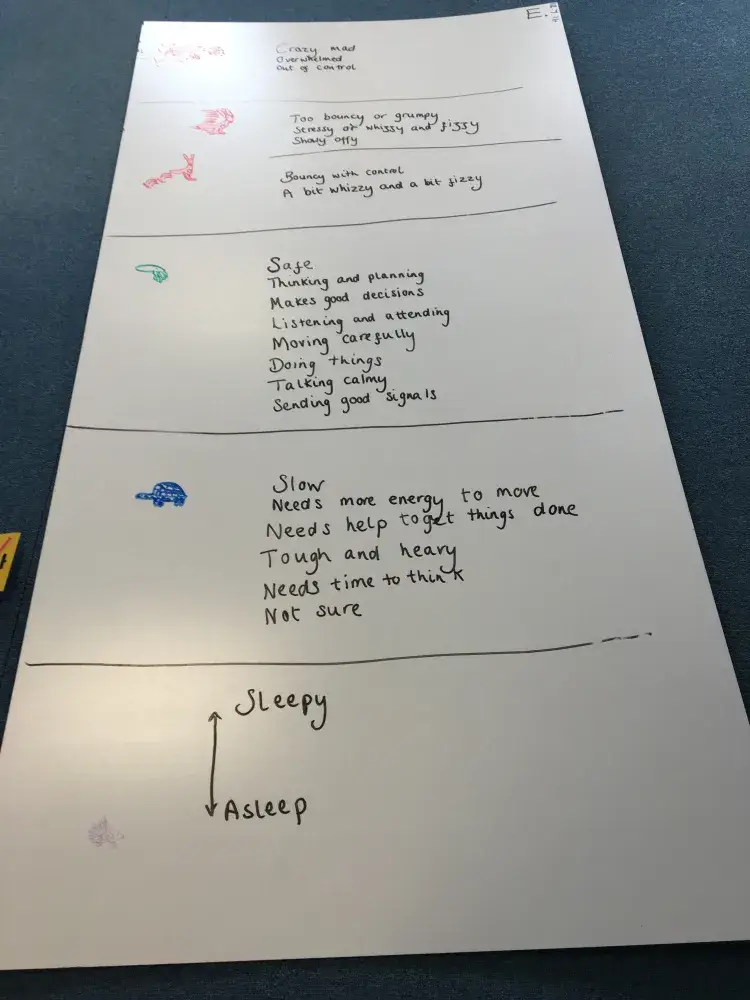 E.
Crazy mad
Overwhelmed
Out of control
Too bouncy or grumpy
Stressy or whizzy and fizzy
Showy offy
Bouncy with control
A bit whizzy and a bit fizzy
Safe
Thinking and planning
Makes good decisions
Listening and attending
Moving carefully
Doing things
Talking calmy
Sending good signals
Slow
Needs more energy to move
Needs help to get things done
Tough and heavy
Needs time to think
Not sure
Sleepy
Asleep